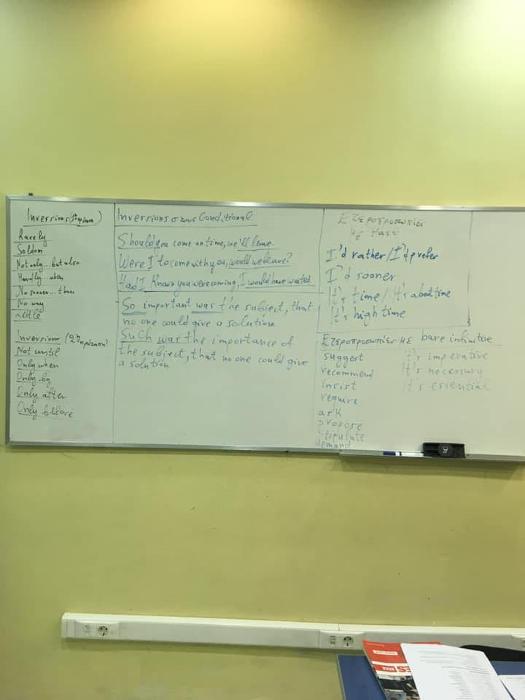 Inversions (1η
Rarely
Seldom
Not only.. but also
Hardly.. when
No sooner... than
No way
Little
Inversions (2η
Not until
Only when
Only by
Only after
Only before
Inversions στους Conditional
Should you come on time, we'll leave.
Were I to come with you, would we leave?
Had I known you were coming, I would have waited
So important was the subject, that
no one could give a solution
Such was the importance of
the subject, that no one could give
a solution
Ετεροπροσωπίες
με Past
I'd rather/I'd prefer
I'd sooner
It's time / It's about time
It's high time
Ετεροπροσωπίες με bare infinitive
suggest
recommend
insist
require
ask
propose
stipulate
demand
It's imperative
It's necessary
It's essential